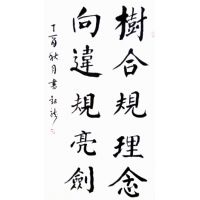 樹合規理念
向違規亮劍
丁酉秋月書